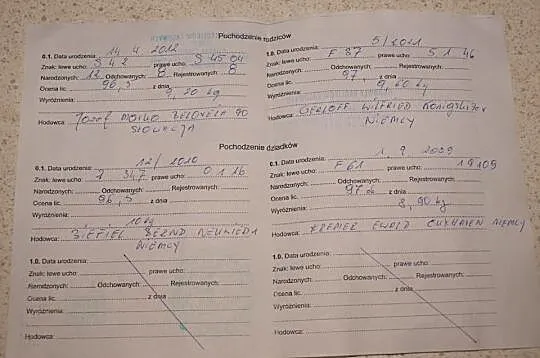 Pochodzenie rodziców
0.1. Data urodzenia: 14 4 2012
Znak: lewe ucho: S 42 prawe ucho: S 4504
Narodzonych: 12 Odchowanych: 8 Rejestrowanych: 8
Ocena lic. 96,5 z dnia
Wyróżnienia: 9,20 kg
Hodowca: Jozef 90
SŁOWACJA
1.0. Data urodzenia: 5/2011
Znak: lewe ucho: F 87 prawe ucho: 5 1 46
Narodzonych: Odchowanych: Rejestrowanych:
Ocena lic. 97, z dnia
Wyróżnienia: 9,20 kg
Hodowca: GERLOFF WILFRIED
NIEMCY
Pochodzenie dziadków
0.1. Data urodzenia: 12/2010
Znak: lewe ucho: 347 prawe ucho: 0 1 26
Narodzonych: Odchowanych: Rejestrowanych:
Ocena lic. 96,5 z dnia
Wyróżnienia: 10 kg
Hodowca: BERND NEUWIEDN
NIEMCY
0.1. Data urodzenia: 1. 9 2009
Znak: lewe ucho: F61 prawe ucho: 19109
Narodzonych: Odchowanych: Rejestrowanych:
Ocena lic. 97 z dnia
Wyróżnienia: 8,90 kg
Hodowca: KREMER EWALD CUXHAVEN NIEMCY
1.0. Data urodzenia:
Znak: lewe ucho: prawe ucho:
Narodzonych: Odchowanych: Rejestrowanych:
Ocena lic. z dnia
Wyróżnienia:
Hodowca:
1.0. Data urodzenia:
Znak: lewe ucho: prawe ucho:
Narodzonych: Odchowanych: Rejestrowanych:
Ocena lic. z dnia
Wyróżnienia:
Hodowca: